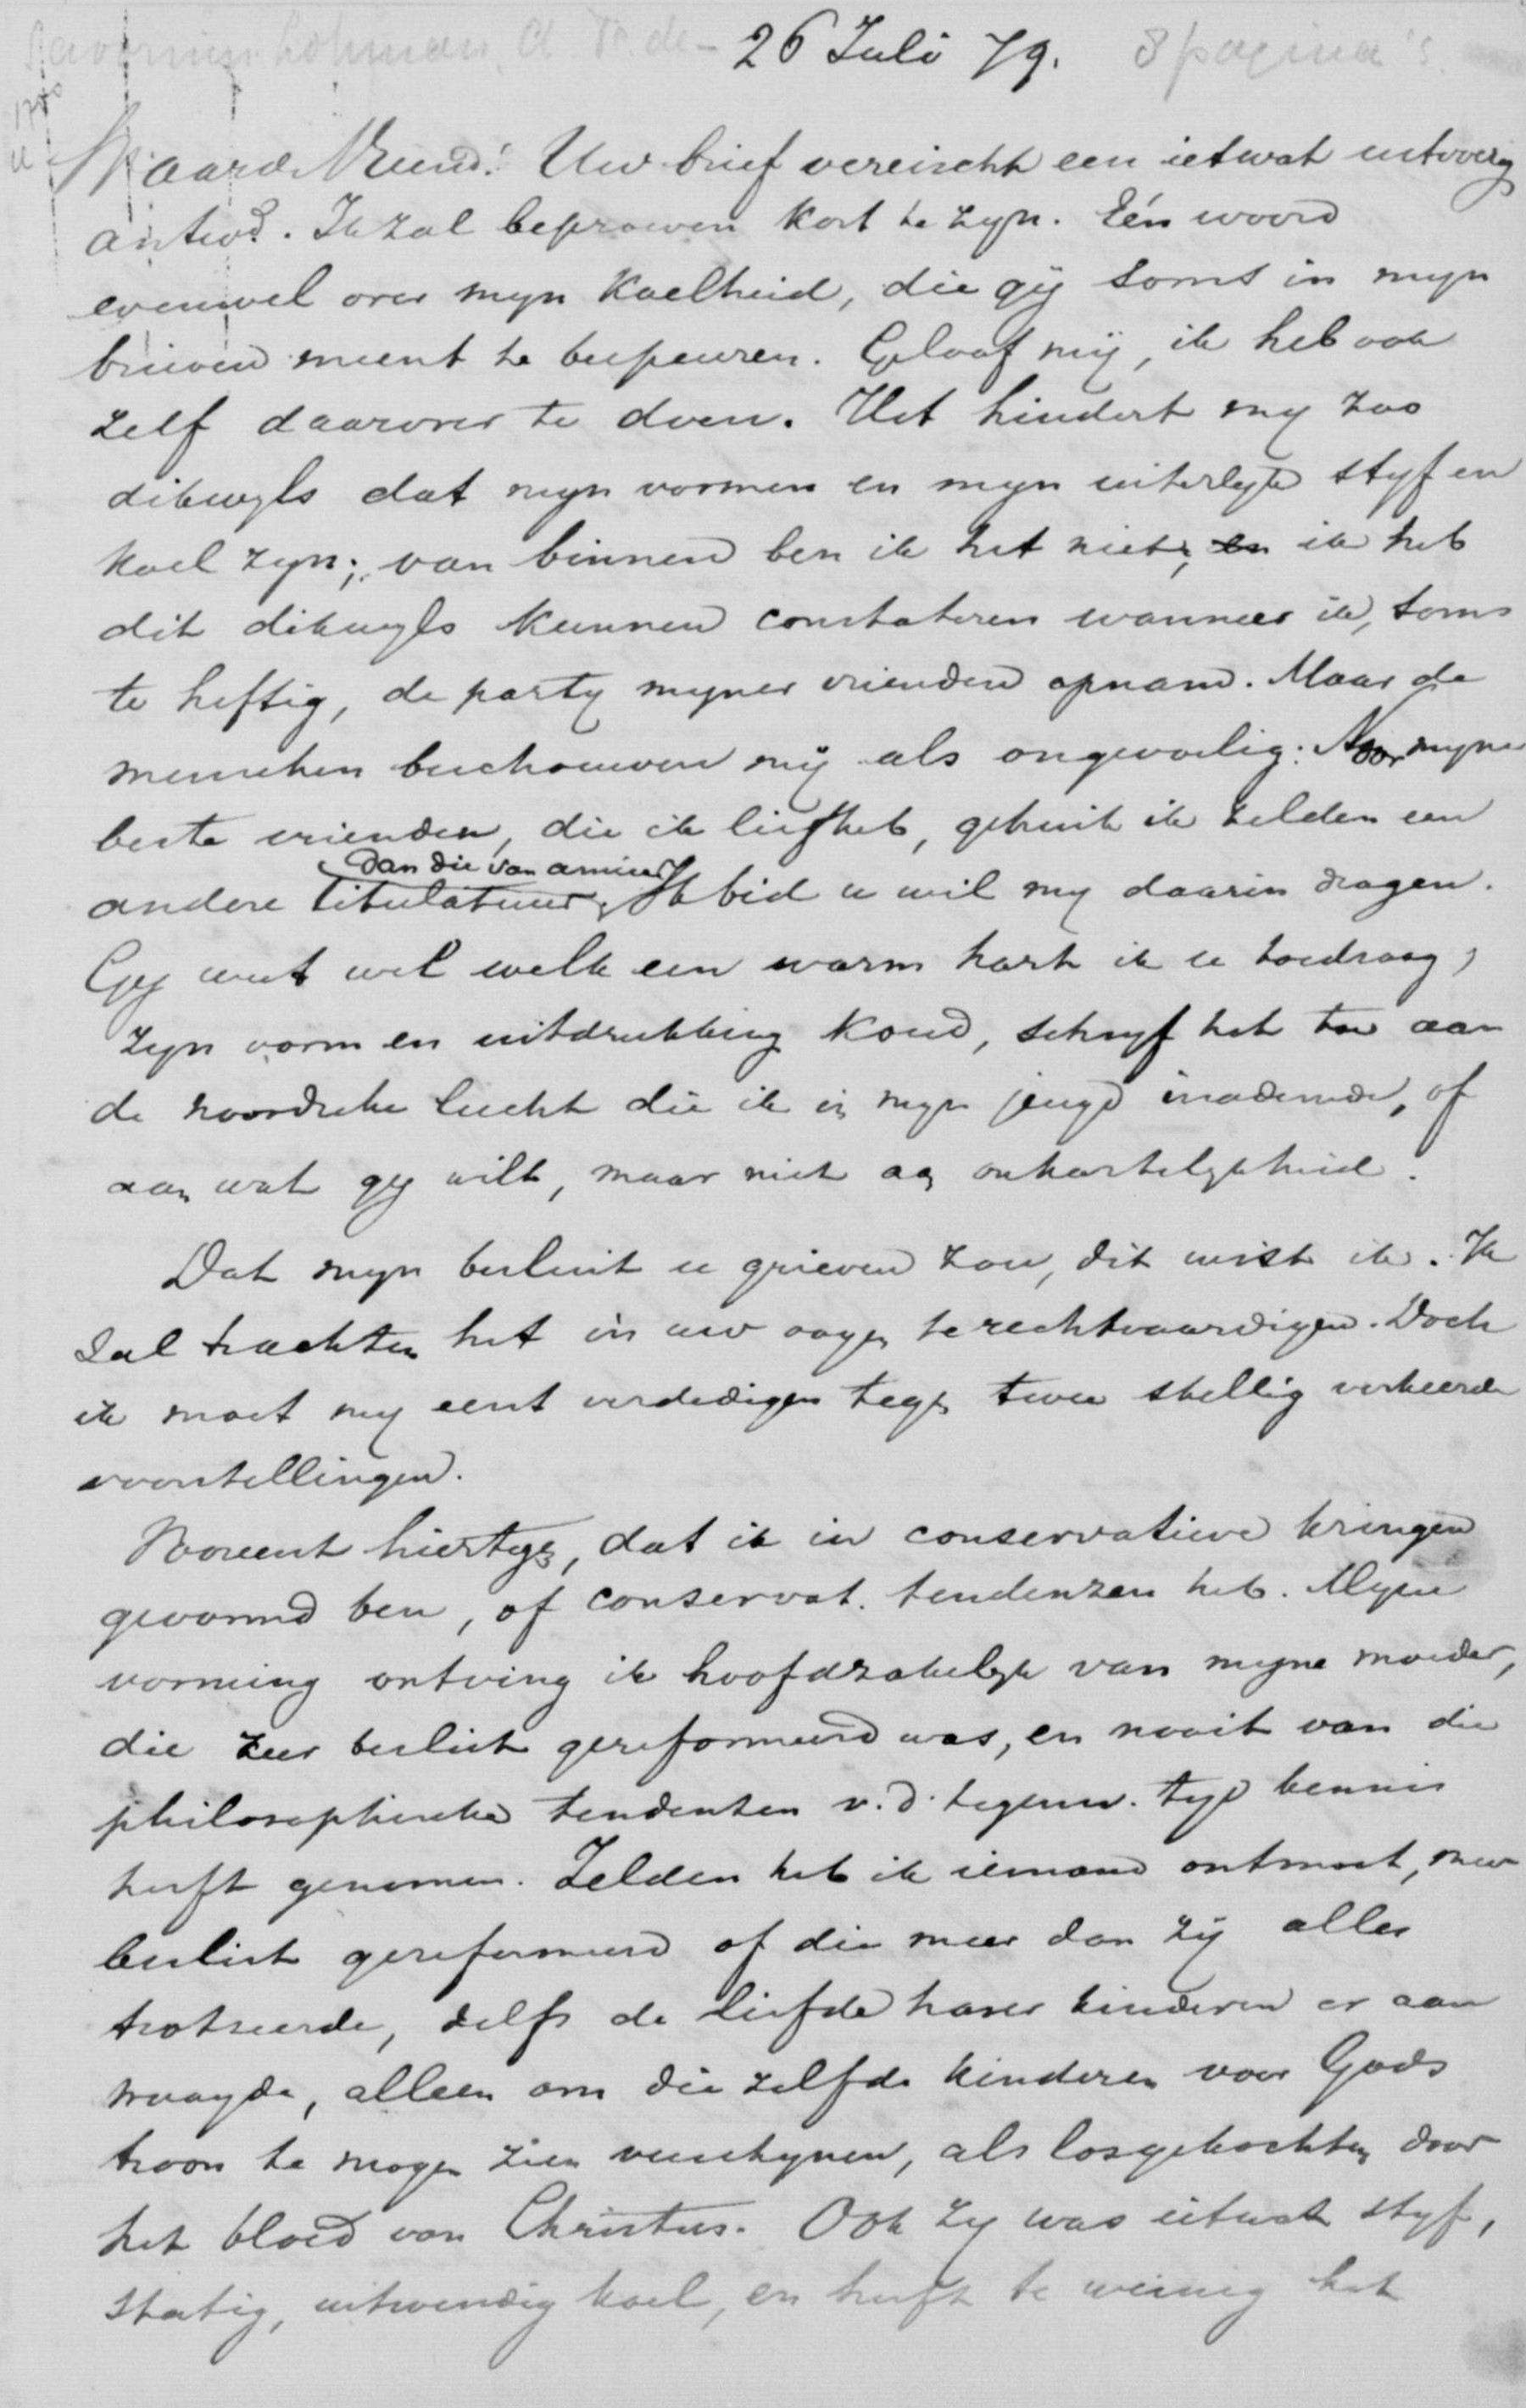 Savornin Lohman, A. F. de - 26 Juli 79. 8 pagina's.
Waarde Vriend! Uw brief vereischt een ietwat uitvoerig
antwd. Ik zal beproeven kort te zyn. Eén woord
evenwel over myn koelheid, die gij soms in myn
brieven meent te bespeuren. Geloof mij, ik heb ook
zelf daarover te doen. Het hindert my zoo
dikwyls dat myn vormen en myn uiterlyk styf en
koel zyn; van binnen ben ik het niet; en ik heb
dit dikwyls kunnen constateren wanneer ik, soms
te heftig, de party myner vrienden opnam. Maar de
menschen beschouwen mij als ongevoelig. Voor myne
beste vrienden, die ik liefheb, gebruik ik zelden een
dan die van amice
andere titulatuur. Ik bid u wil my daarin dragen.
Gy weet wel welk een warm hart ik u toedraag;
zyn vorm en uitdrukking koud, schryf het toe aan
de noordsche lucht die ik in myn jeugd inademde, of
aan wat gy wilt, maar niet aan onhartelykheid.
Dat myn besluit u grieven zou, dit wist ik. Ik
zal trachten het in uw oogen te rechtvaardigen. Doch
ik moet my eerst verdedigen tegen twee stellig verkeerde
voorstellingen.
Vooreerst hiertegen, dat ik in conservatieve kringen
gevormd ben, of conservat. tendenzen heb. Myne
vorming ontving ik hoofdzakelyk van myne moeder,
die zeer beslist gereformeerd was, en nooit van die
philosophische tendenzen v. d. tegenw. tyd kennis
heeft genomen. Zelden heb ik iemand ontmoet, meer
beslist gereformeerd of die meer dan zij alles
trotseerde, zelfs de liefde harer kinderen er aan
waagde, alleen om die zelfde kinderen voor Gods
troon te mogen zien verschynen, als losgekochten door
het bloed van Christus. Ook zy was ietwat styf,
statig, uitwendig koel, en heeft te weinig het